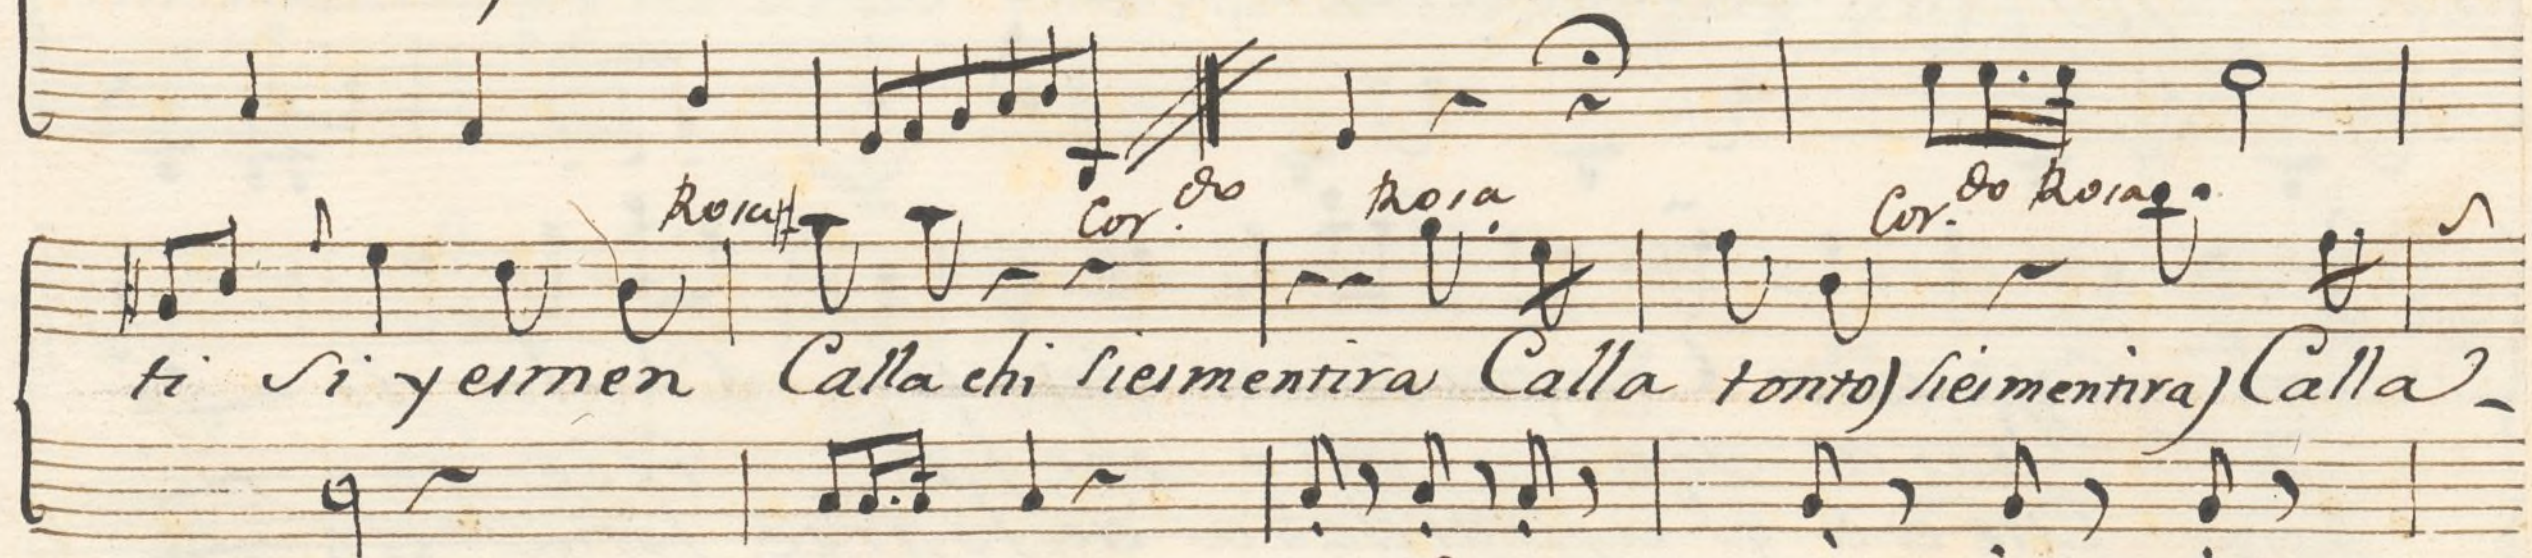 Rosa Cor.do Rosa Cor.do Rosa
ti si y es men Calla chi si es mentira Calla tonto) si es mentira) Calla